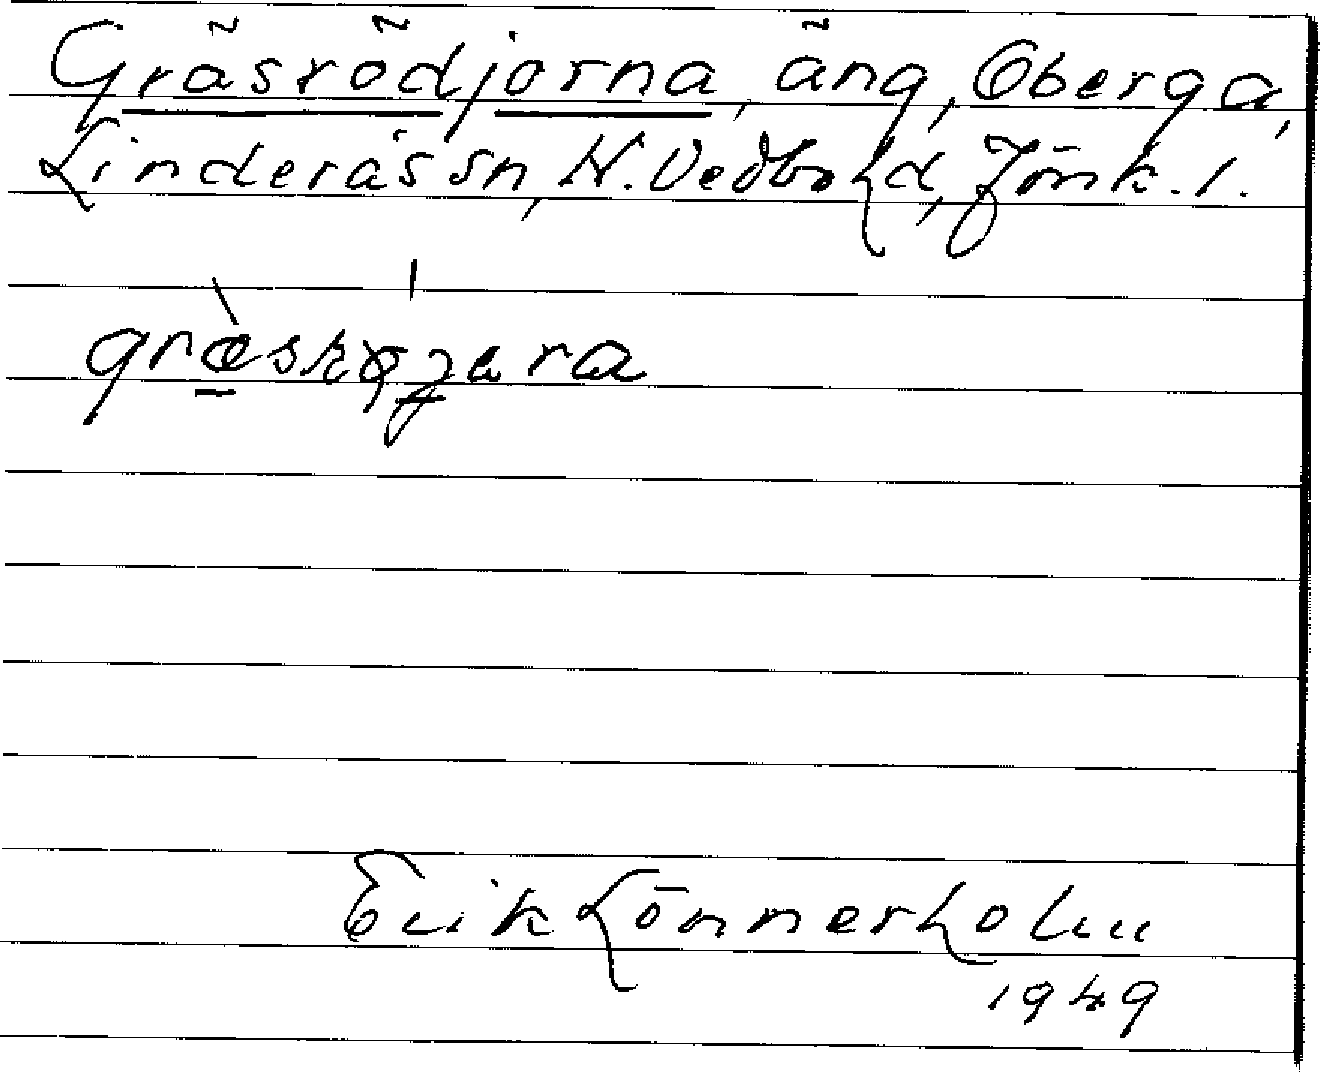 Gräsrödjorna, äng, Öberga,
Linderås sn, N. Vedbo hd, Jönk. l.
Erik Lönnerholm
1949